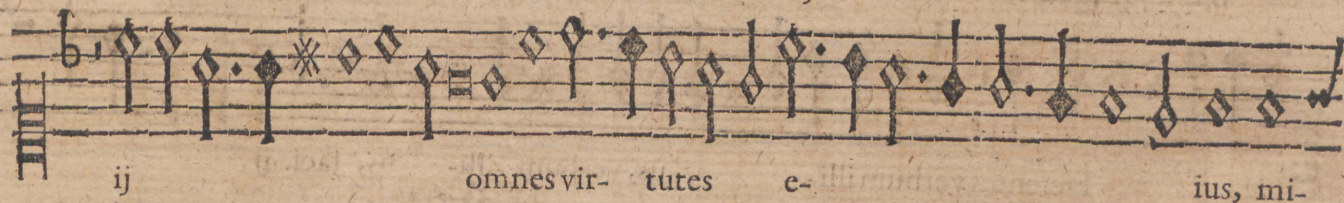 ij omnes vir- tutes e- ius, mi-